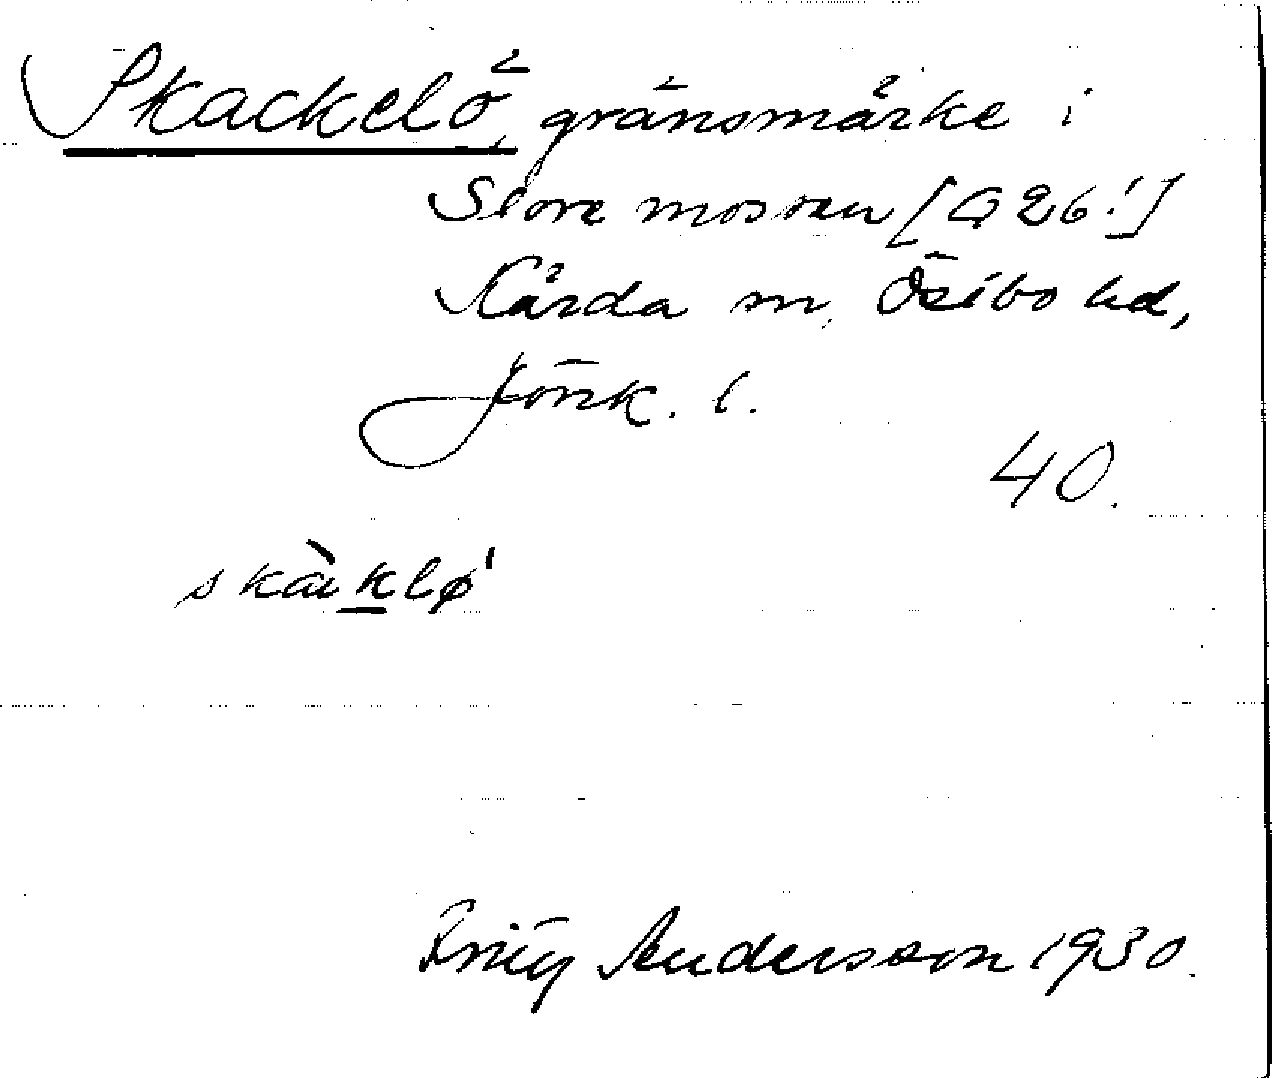 Skackelö, gränsmärke i
Stora mossen [G 26!]
Kärda sn, Östbo hd,
Jönk. l.
40.
skàklø'
Andersson 1930.